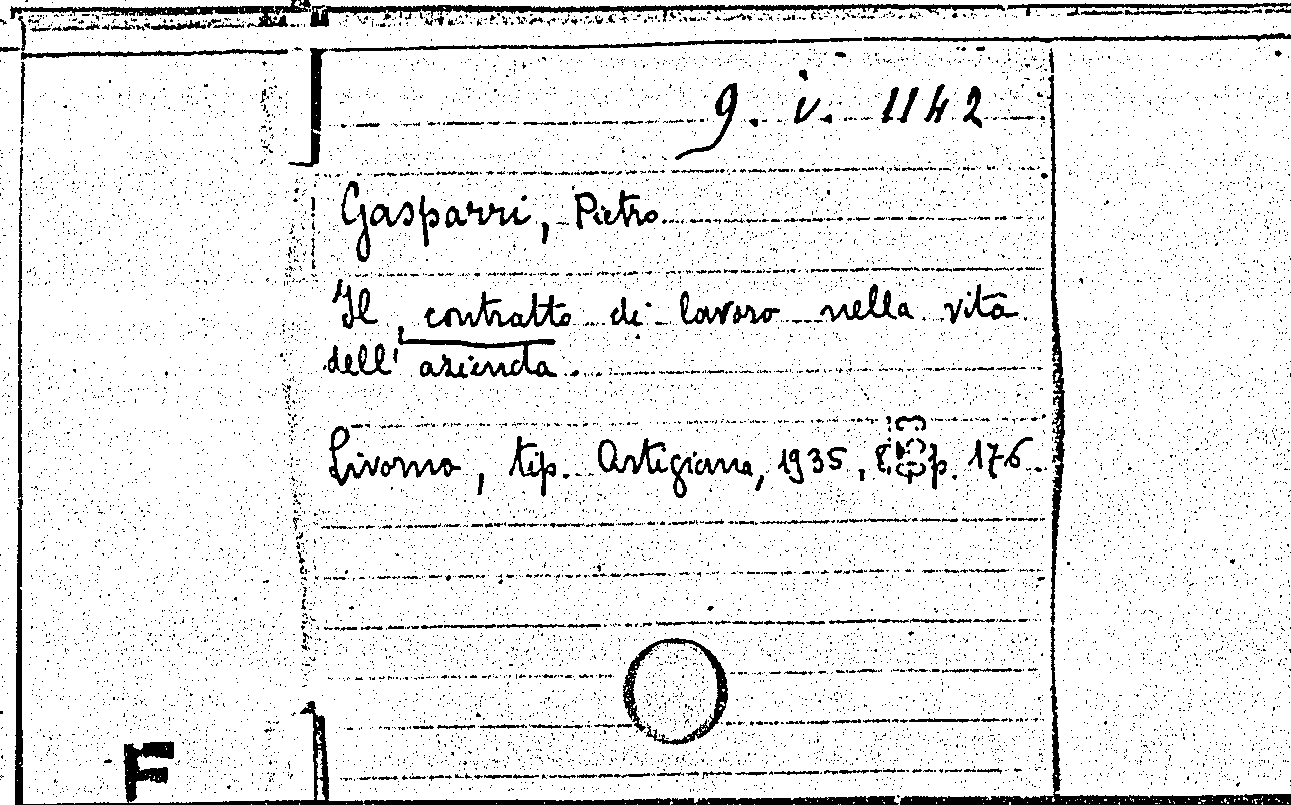 9. v. 1142
Gasparri, Pietro
Il contratto di lavoro nella vita
dell'azienda.
Livorno, tip. Artigiana, 1935, p. 176.
F